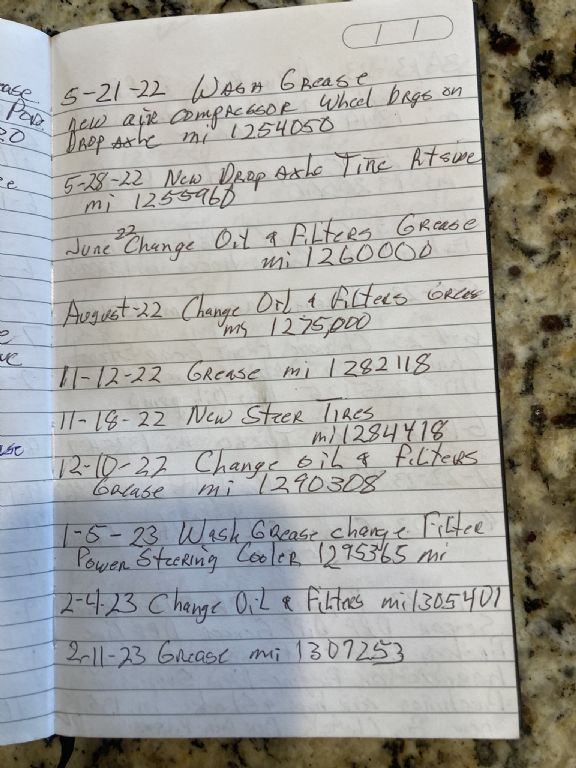 ase
Pow
20
5-21-22 Wash Grease
new air compressor wheel brgs on
Drop Axle mi 1254050
5-28-22 New Drop Axle Tire Rt side
mi 1255960
June 22 Change Oil & Filters Grease
mi 1260000
August-22 Change Oil & Filters Grease
mi 1275,000
11-12-22 Grease mi 1282118
11-18-22 New Steer Tires
mi 1284418
12-10-22 Change oil & filters
Grease mi 1290308
1-5-23 Wash Grease change Filter
Power Steering Cooler 1295365 mi
2-4-23 Change Oil & Filters mi 1305401
2-11-23 Grease mi 1307253